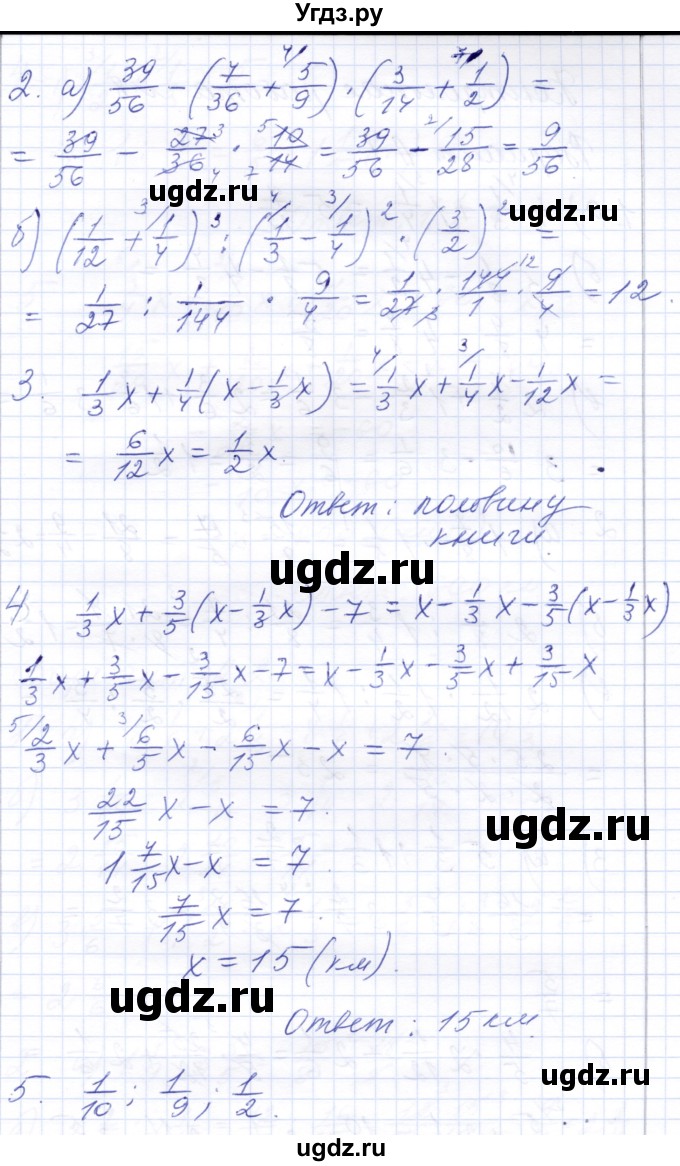 Угдз.ру
2. а) 39/56 − (7/36 + 4/ 5/9) · (3/14 + 7/ 1/2) =
= 39/56 − 27 3/36 4 · 5 10/14 7 = 39/56 − 2/ 15/28 = 9/56
ugdz.ru
ugdz.ru
б) (1/12 + 3/ 1/4)³ : (4/ 1/3 − 3/ 1/4)² · (3/2)² =
= 1/27 : 1/144 · 9/4 = 1/27 3 · 144 12/1 · 9/4 = 12.
3. 1/3 x + 1/4 (x − 1/3 x) = 4/ 1/3 x + 3/ 1/4 x − 1/12 x =
= 6/12 x = 1/2 x.
Ответ: половину
книги.
ugdz.ru
4 1/3 x + 3/5 (x − 1/3 x) − 7 = x − 1/3 x − 3/5 (x − 1/3 x)
1/3 x + 3/5 x − 3/15 x − 7 = x − 1/3 x − 3/5 x + 3/15 x
5/ 2/3 x + 3/ 6/5 x − 6/15 x − x = 7.
22/15 x − x = 7.
ugdz.ru
1 7/15 x − x = 7.
7/15 x = 7.
x = 15 (км).
ugdz.ru
Ответ: 15 км.
5. 1/10; 1/9; 1/2.
ugdz.ru